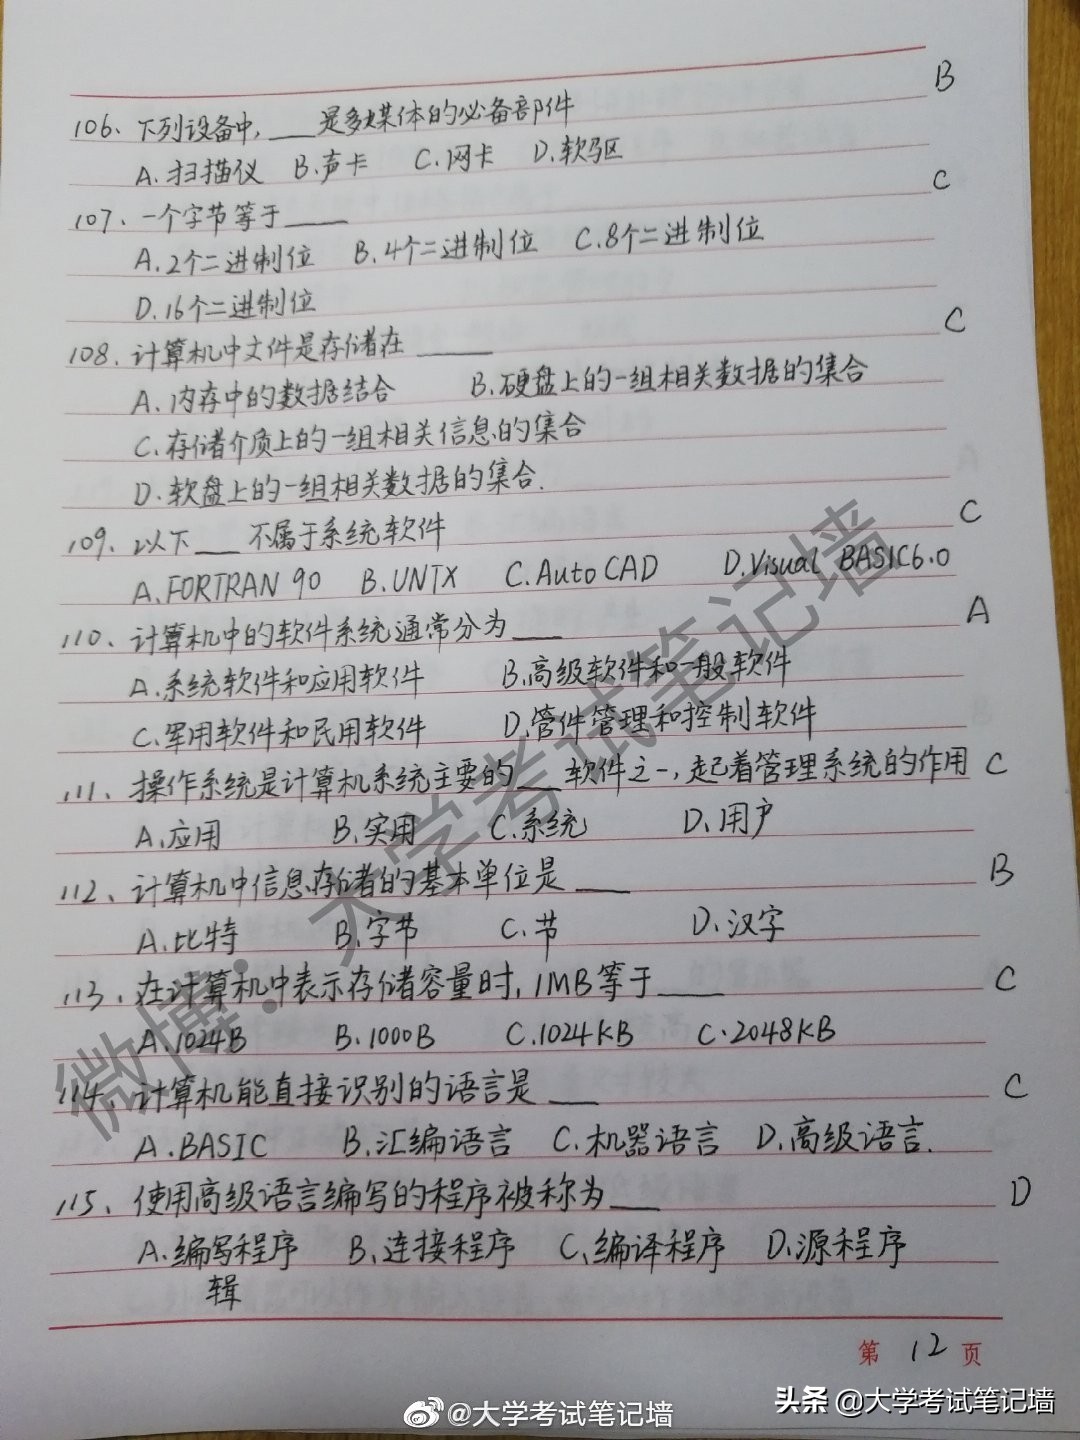 B
106、下列设备中,___是多媒体的必备部件
A.扫描仪 B.声卡 C.网卡 D.软驱
C
107、一个字节等于____
A.2个二进制位 B.4个二进制位 C.8个二进制位
D.16个二进制位
C
108.计算机中文件是存储在_____
A.内存中的数据结合 B.硬盘上的一组相关数据的集合
C.存储介质上的一组相关信息的集合
D.软盘上的一组相关数据的集合.
C
109.以下___不属于系统软件
A.FORTRAN 90 B.UNIX C.AutoCAD D.Visual BASIC6.0
A
110、计算机中的软件系统通常分为___
A.系统软件和应用软件 B.高级软件和一般软件
C.军用软件和民用软件 D.管件管理和控制软件
111、操作系统是计算机系统主要的___软件之一,起着管理系统的作用 C
A.应用 B.实用 C.系统 D.用户
112、计算机中信息存储的基本单位是____ B
A.比特 B.字节 C.节 D.汉字
113、在计算机中表示存储容量时,1MB等于____ C
A.1024B B.1000B C.1024KB C.2048KB
114、计算机能直接识别的语言是___ C
A.BASIC B.汇编语言 C.机器语言 D.高级语言.
115、使用高级语言编写的程序被称为___ D
A.编写程序 B.连接程序 C.编译程序 D.源程序
辑
第 12 页
微博:大学考试笔记墙
@大学考试笔记墙
头条@大学考试笔记墙